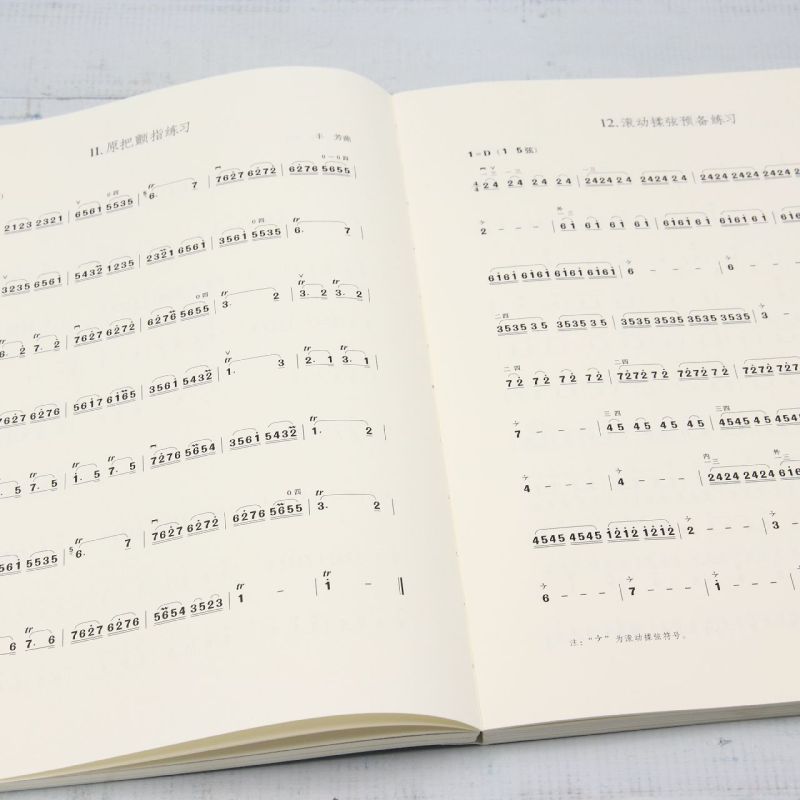 11. 原把颤指练习
丰 芳曲
2123 2321 | 6561 5535 | 6. 7 | 7627 6272 | 6276 5655 |
3235 6561 | 5432 1235 | 2321 6561 | 3561 5535 | 6. 7 |
6. 2 7. 2 | 7627 6272 | 6276 5655 | 3. 2 | 3. 2 3. 2 |
7627 6276 | 5617 6165 | 3561 5432 | 1. 3 | 2. 1 3. 1 |
5 7. 5 | 1. 5 7. 5 | 7276 5654 | 3561 5432 | 1. 2 |
561 5535 | 6. 7 | 7627 6272 | 6276 5655 | 3. 2 |
6 7. 6 | 7627 6276 | 5654 3523 | 1 – | 1 – ‖
12. 滚动揉弦预备练习
1=D（1 5弦）
4/4 24 24 24 24 | 2424 24 2424 24 | 2424 2424 2424
2 – – – | 61 61 61 61 | 6161 61 6161 61
6161 6161 6161 6161 | 6 – – – | 6 – – –
3535 35 3535 35 | 3535 3535 3535 3535 | 3 –
72 72 72 72 | 7272 72 7272 72 | 7272
7 – – – | 45 45 45 45 | 4545 45 4545
4 – – – | 4 – – – | 2424 2424
4545 4545 1212 1212 | 2 – – – | 3 –
6 – – – | 7 – – – | 1 – – –
为滚动揉弦符号。